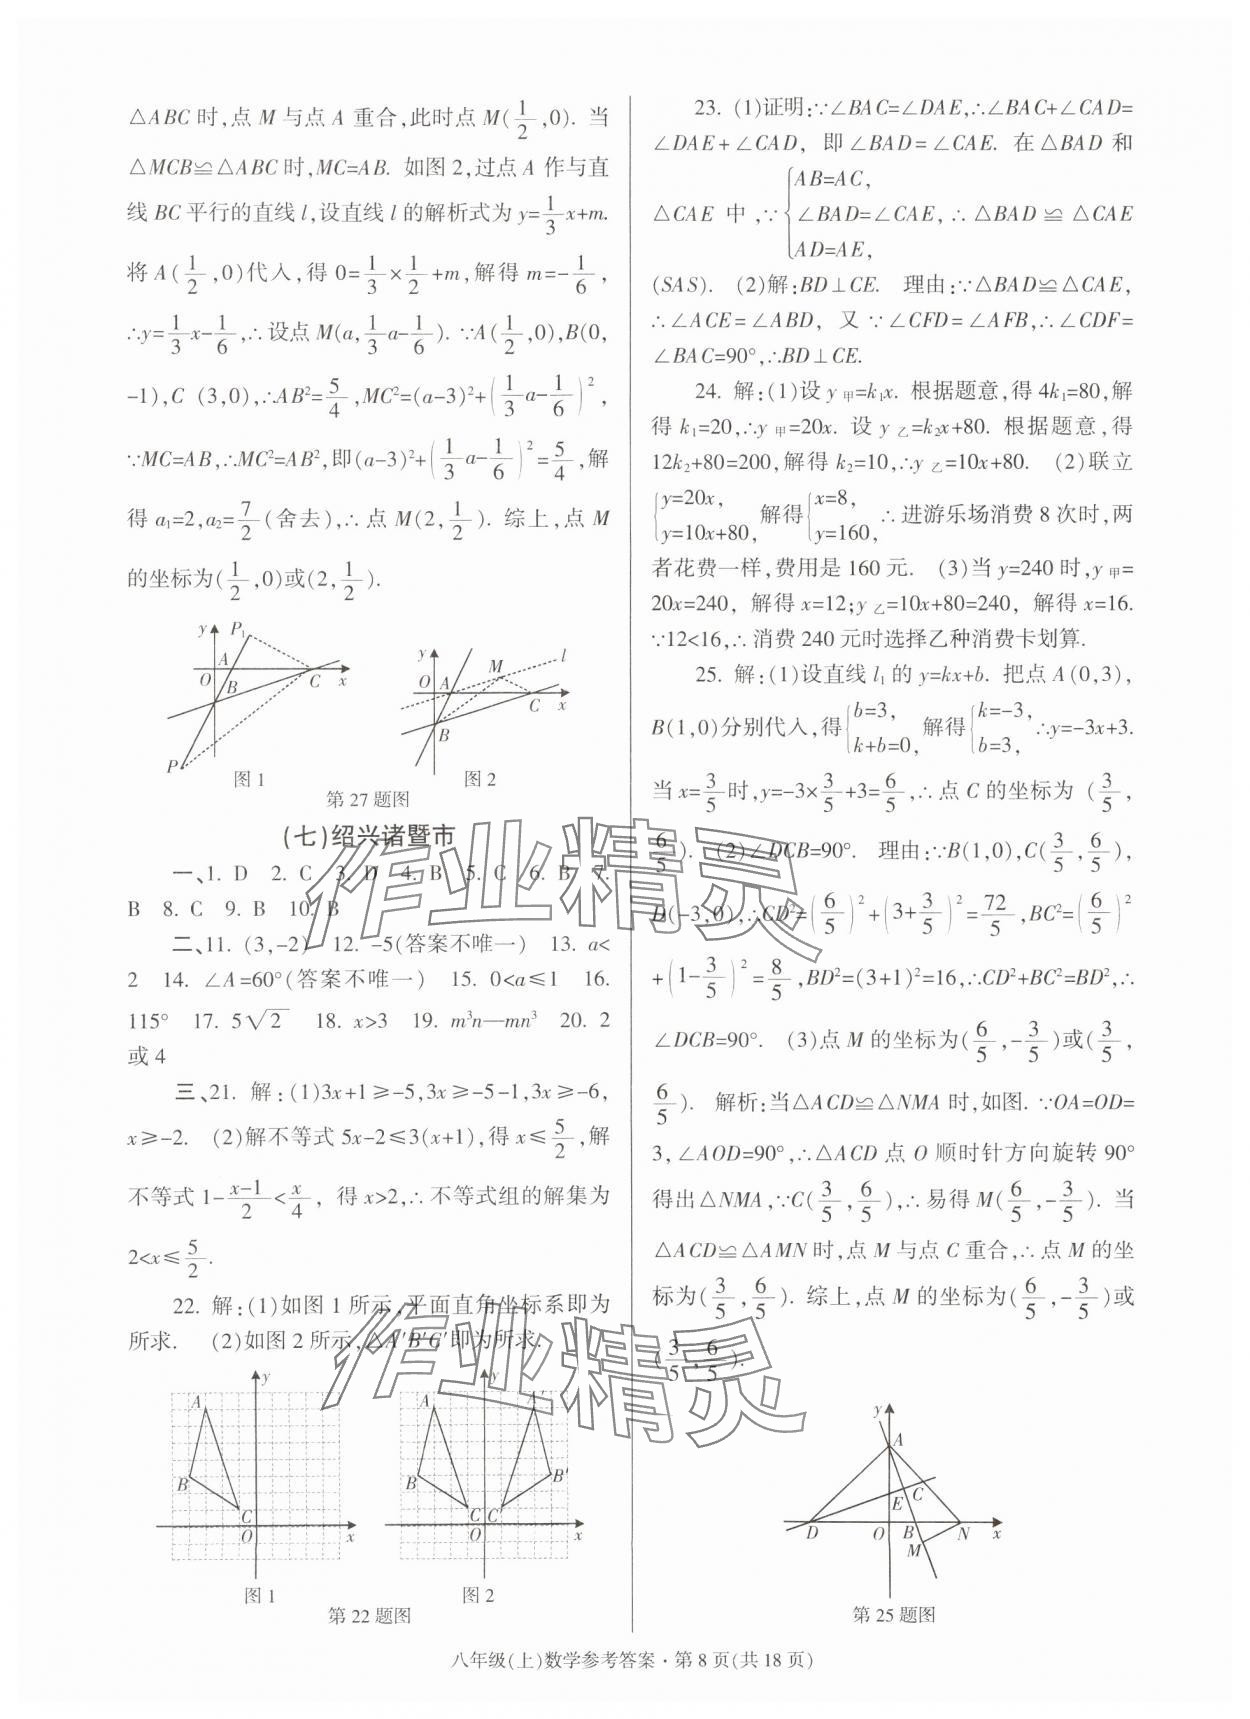 △ABC 时,点 M 与点 A 重合,此时点 M(1/2,0). 当
△MCB≌△ABC 时,MC=AB. 如图 2,过点 A 作与直
线 BC 平行的直线 l,设直线 l 的解析式为 y=1/3x+m.
将 A(1/2,0)代入,得 0=1/3×1/2+m,解得 m=-1/6,
∴y=1/3x-1/6,∴设点 M(a,1/3a-1/6). ∵A(1/2,0),B(0,
-1),C (3,0),∴AB²=5/4,MC²=(a-3)²+(1/3a-1/6)²,
∵MC=AB,∴MC²=AB²,即(a-3)²+(1/3a-1/6)²=5/4,解
得 a₁=2,a₂=7/2(舍去),∴点 M(2,1/2). 综上,点 M
的坐标为(1/2,0)或(2,1/2).
y P₁
A
O B C x
P
图 1
y
M l
O A
C x
B
图 2
第 27 题图
(七)绍兴诸暨市
一、1. D 2. C 3. D 4. B 5. C 6. B 7.
B 8. C 9. B 10. B
二、11. (3,-2) 12. -5(答案不唯一) 13. a<
2 14. ∠A=60°(答案不唯一) 15. 0<a≤1 16.
115° 17. 5√2 18. x>3 19. m³n—mn³ 20. 2
或 4
三、21. 解:(1)3x+1≥-5,3x≥-5-1,3x≥-6,
x≥-2. (2)解不等式 5x-2≤3(x+1),得 x≤5/2,解
不等式 1-(x-1)/2<x/4, 得 x>2,∴不等式组的解集为
2<x≤5/2.
22. 解:(1)如图 1 所示,平面直角坐标系即为
所求. (2)如图 2 所示,△A′B′C′即为所求.
y
A
B
C
O x
图 1
y
A A′
B B′
C C′
O x
图 2
第 22 题图
23. (1)证明:∵∠BAC=∠DAE,∴∠BAC+∠CAD=
∠DAE+∠CAD, 即∠BAD=∠CAE. 在△BAD 和
△CAE 中,∵{AB=AC, ∠BAD=∠CAE, AD=AE, ∴△BAD≌△CAE
(SAS). (2)解:BD⊥CE. 理由:∵△BAD≌△CAE,
∴∠ACE=∠ABD, 又∵∠CFD=∠AFB,∴∠CDF=
∠BAC=90°,∴BD⊥CE.
24. 解:(1)设 y甲=k₁x. 根据题意,得 4k₁=80,解
得 k₁=20,∴y甲=20x. 设 y乙=k₂x+80. 根据题意,得
12k₂+80=200,解得 k₂=10,∴y乙=10x+80. (2)联立
{y=20x, y=10x+80, 解得{x=8, y=160, ∴进游乐场消费 8 次时,两
者花费一样,费用是 160 元. (3)当 y=240 时,y甲=
20x=240, 解得 x=12;y乙=10x+80=240, 解得 x=16.
∵12<16,∴消费 240 元时选择乙种消费卡划算.
25. 解:(1)设直线 l₁的 y=kx+b. 把点 A(0,3),
B(1,0)分别代入,得{b=3, k+b=0, 解得{k=-3, b=3, ∴y=-3x+3.
当 x=3/5时,y=-3×3/5+3=6/5,∴点 C 的坐标为 (3/5,
6/5). (2)∠DCB=90°. 理由:∵B(1,0),C(3/5,6/5),
D(-3,0),∴CD²=(6/5)²+(3+3/5)²=72/5,BC²=(6/5)²
+(1-3/5)²=8/5,BD²=(3+1)²=16,∴CD²+BC²=BD²,∴
∠DCB=90°. (3)点 M 的坐标为(6/5,-3/5)或(3/5,
6/5). 解析:当△ACD≌△NMA 时,如图. ∵OA=OD=
3,∠AOD=90°,∴△ACD 点 O 顺时针方向旋转 90°
得出△NMA,∵C(3/5,6/5),∴易得 M(6/5,-3/5). 当
△ACD≌△AMN 时,点 M 与点 C 重合,∴点 M 的坐
标为(3/5,6/5). 综上,点 M 的坐标为(6/5,-3/5)或
(3/5,6/5).
y
A
E C
D O B N x
M
第 25 题图
八年级(上)数学参考答案·第 8 页(共 18 页)
作业精灵
作业精灵